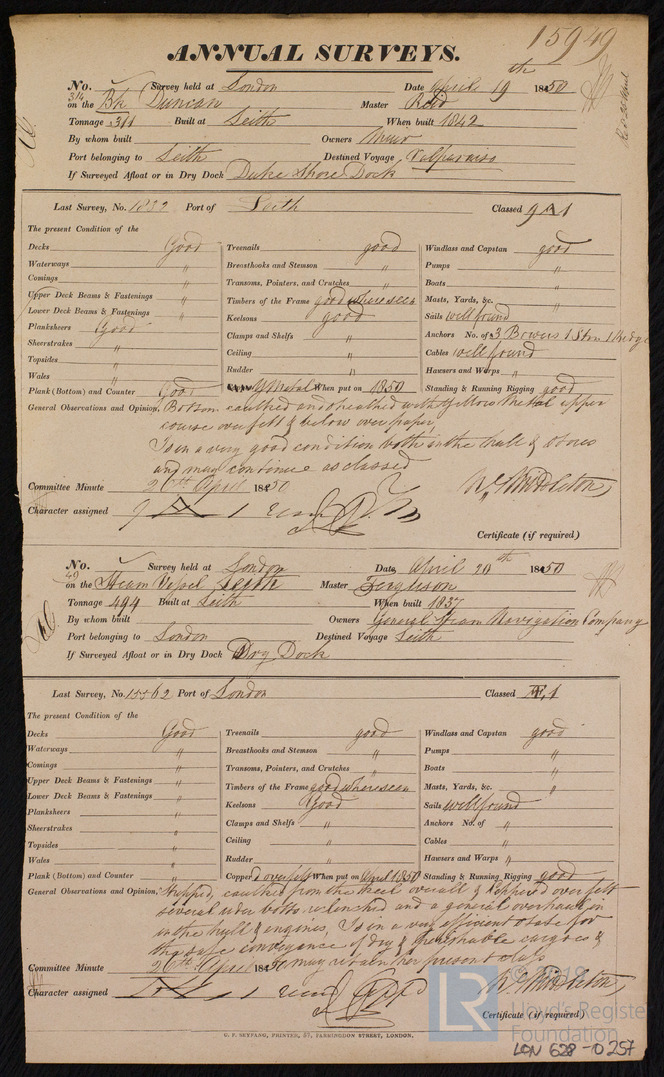 15949
ANNUAL SURVEYS.
No. Survey held at London Date April 19th 1850
314
on the Bk Duncan Master Reid
Tonnage 311 Built at Leith When built 1842
By whom built Owners Muir
Port belonging to Leith Destined Voyage Valparaiso
If Surveyed Afloat or in Dry Dock Duke Shore Dock
Last Survey, No. 1832 Port of Leith Classed 9 A 1
The present Condition of the
Decks Good Treenails good Windlass and Capstan good
Waterways " Breasthooks and Stemson " Pumps "
Comings " Transoms, Pointers, and Crutches " Boats "
Upper Deck Beams & Fastenings " Timbers of the Frame good where seen Masts, Yards, &c. "
Lower Deck Beams & Fastenings " Keelsons good Sails well found
Planksheers Good Clamps and Shelfs " Anchors No. of 3 Bowers 1 Strm 1 Kedge
Sheerstrakes " Ceiling " Cables well found
Topsides " Rudder " Hawsers and Warps "
Wales " Y Metal When put on 1850 Standing & Running Rigging good
Plank (Bottom) and Counter Good
General Observations and Opinion, Bottom caulked and sheathed with yellow metal upper
course over felt & below over paper,
Is in a very good condition both in the hull & stores
and may continue as classed
Committee Minute 26th April 1850 Wm Middleton
Character assigned 9 A 1
Certificate (if required)
No. Survey held at London Date April 20th 1850
49
on the Steam Vessel Leith Master Ferguson
Tonnage 494 Built at Leith When built 1837
By whom built Owners General Steam Navigation Company
Port belonging to London Destined Voyage Leith
If Surveyed Afloat or in Dry Dock Dry Dock
Last Survey, No. 15562 Port of London Classed Æ 1
The present Condition of the
Decks Good Treenails good Windlass and Capstan good
Waterways " Breasthooks and Stemson " Pumps "
Comings " Transoms, Pointers, and Crutches " Boats "
Upper Deck Beams & Fastenings " Timbers of the Frame good where seen Masts, Yards, &c. "
Lower Deck Beams & Fastenings " Keelsons Good Sails well found
Planksheers " Clamps and Shelfs " Anchors No. of "
Sheerstrakes " Ceiling " Cables "
Topsides " Rudder " Hawsers and Warps "
Wales " Copperd over felt When put on April 1850 Standing & Running Rigging good
Plank (Bottom) and Counter "
General Observations and Opinion, Stripped, caulked from the keel overall & copperd over felt
several bolts clenched and a general overhaul in
in the hull & engines, Is in a very efficient state for
the safe conveyance of dry & perishable cargoes &
may retain her present class
Committee Minute 26th April 1850 Wm Middleton
Character assigned 1
Certificate (if required)
G. F. SEYFANG, PRINTED, 57, FARRINGDON STREET, LONDON.
LR
© 2019
Lloyd's Register
Foundation
LON 628-0257